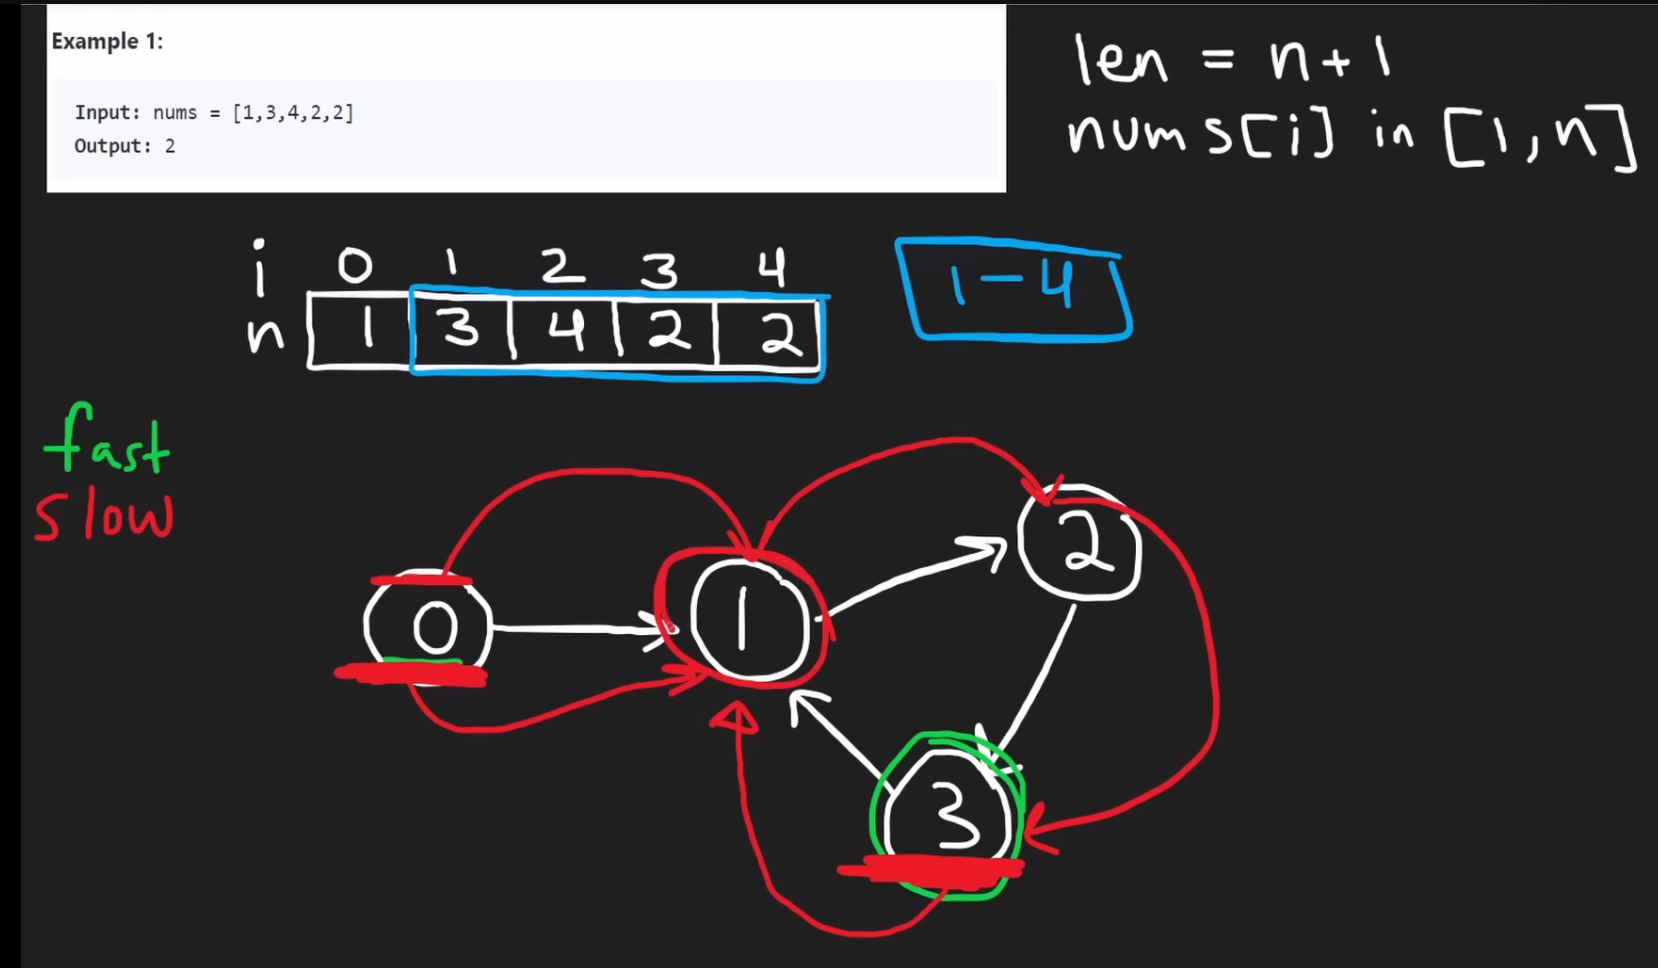 Example 1:
Input: nums = [1,3,4,2,2]
Output: 2
len = n+1
nums[i] in [1,n]
i 0 1 2 3 4
n 1 3 4 2 2
1-4
fast
slow
0
1
2
3